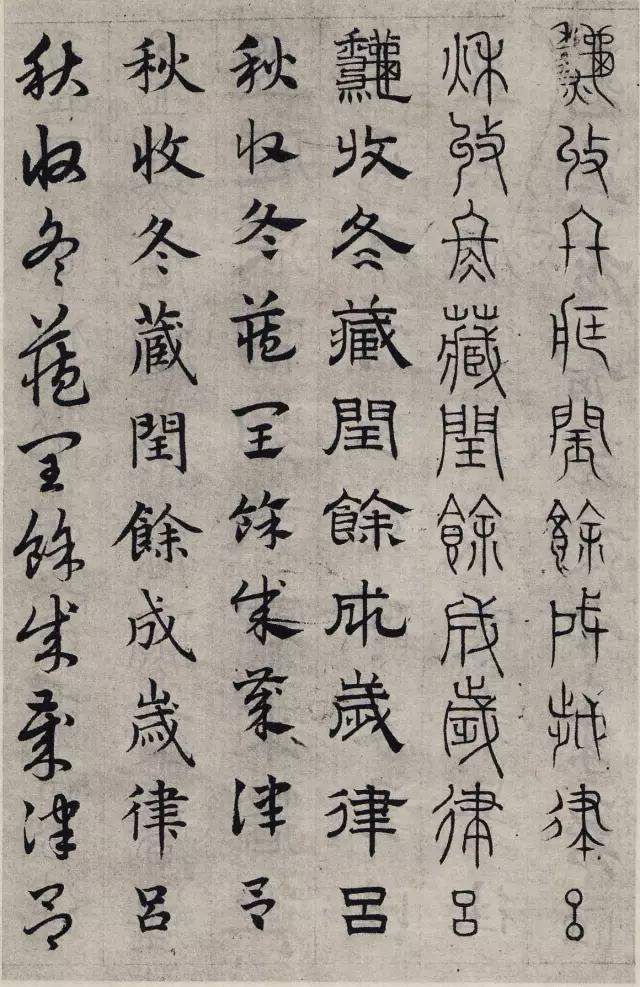 龝收冬藏閏餘成歲律呂
秋收冬藏閏餘成歲律呂
龝收冬藏閏餘成歲律呂
秋収冬藏閏餘成歲律呂
秋收冬蔵閏餘成歳律呂
秋収冬藏閏餘成歲律呂